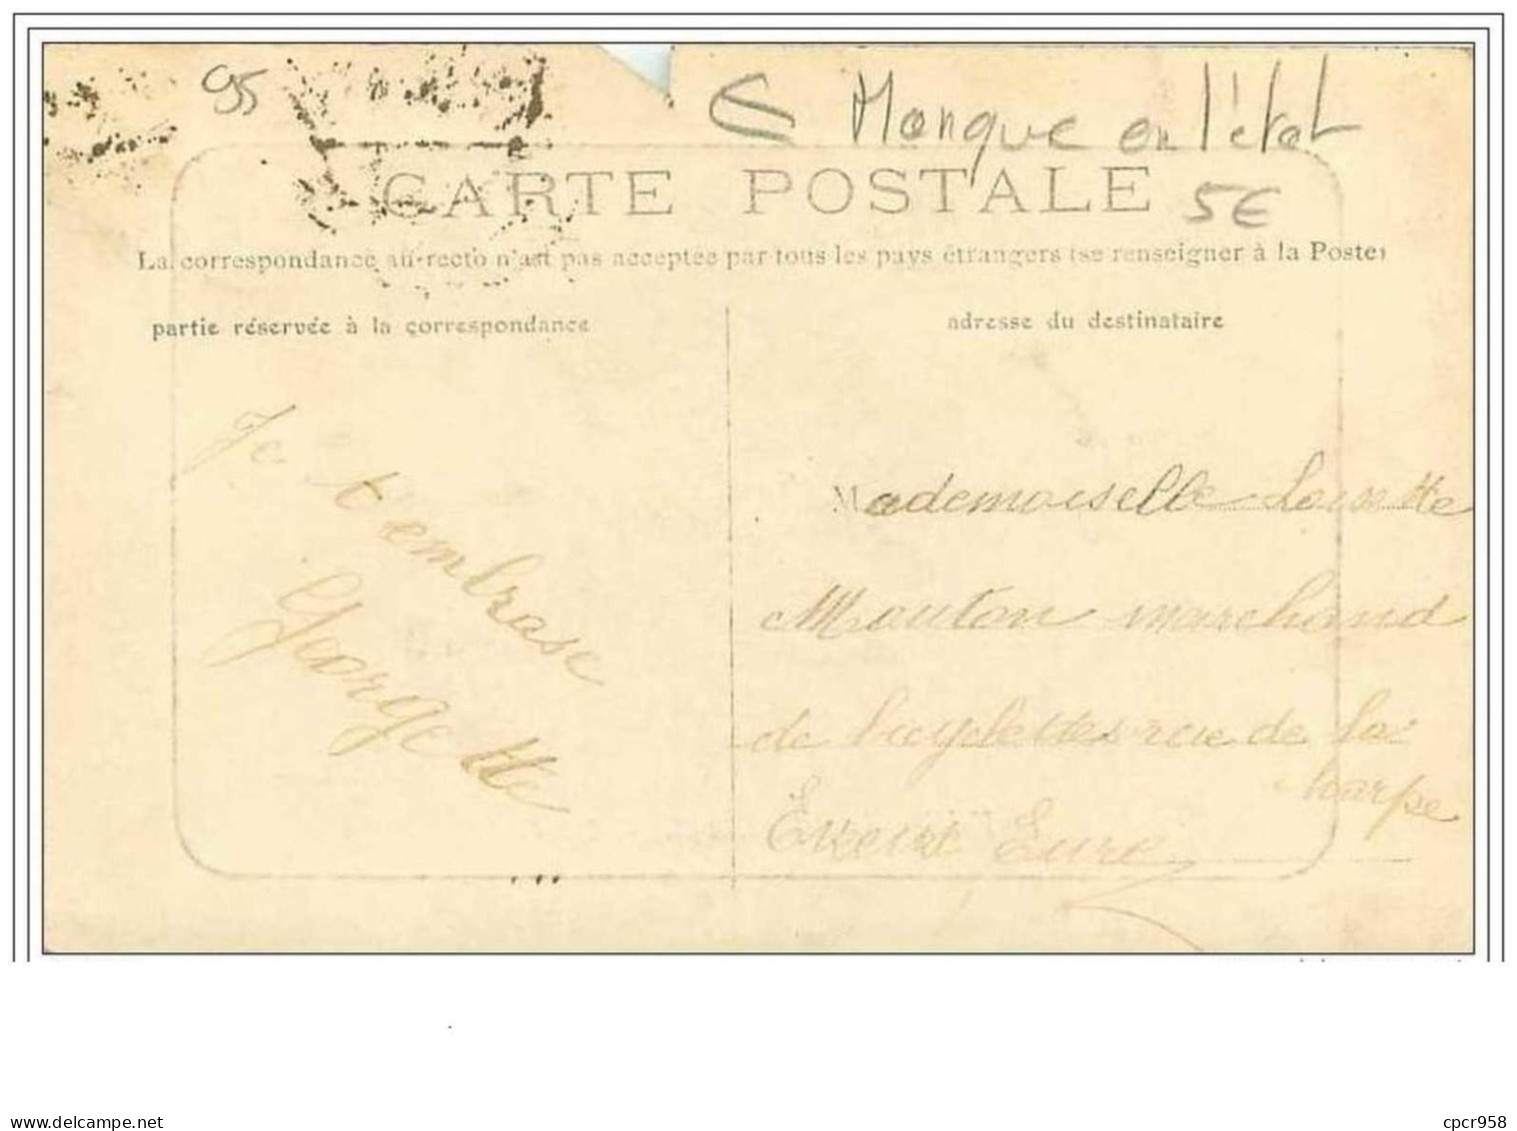 95
Manque en l'état
CARTE POSTALE
5€
La correspondance au recto n'est pas acceptée par tous les pays étrangers (se renseigner à la Poste)
partie réservée à la correspondance
adresse du destinataire
Je t'embrasse
Georgette
Mademoiselle Louisette
Mouton marchand
de bicyclettes rue de la
harpe
Evreux Eure
delcampe.net
cpcr958